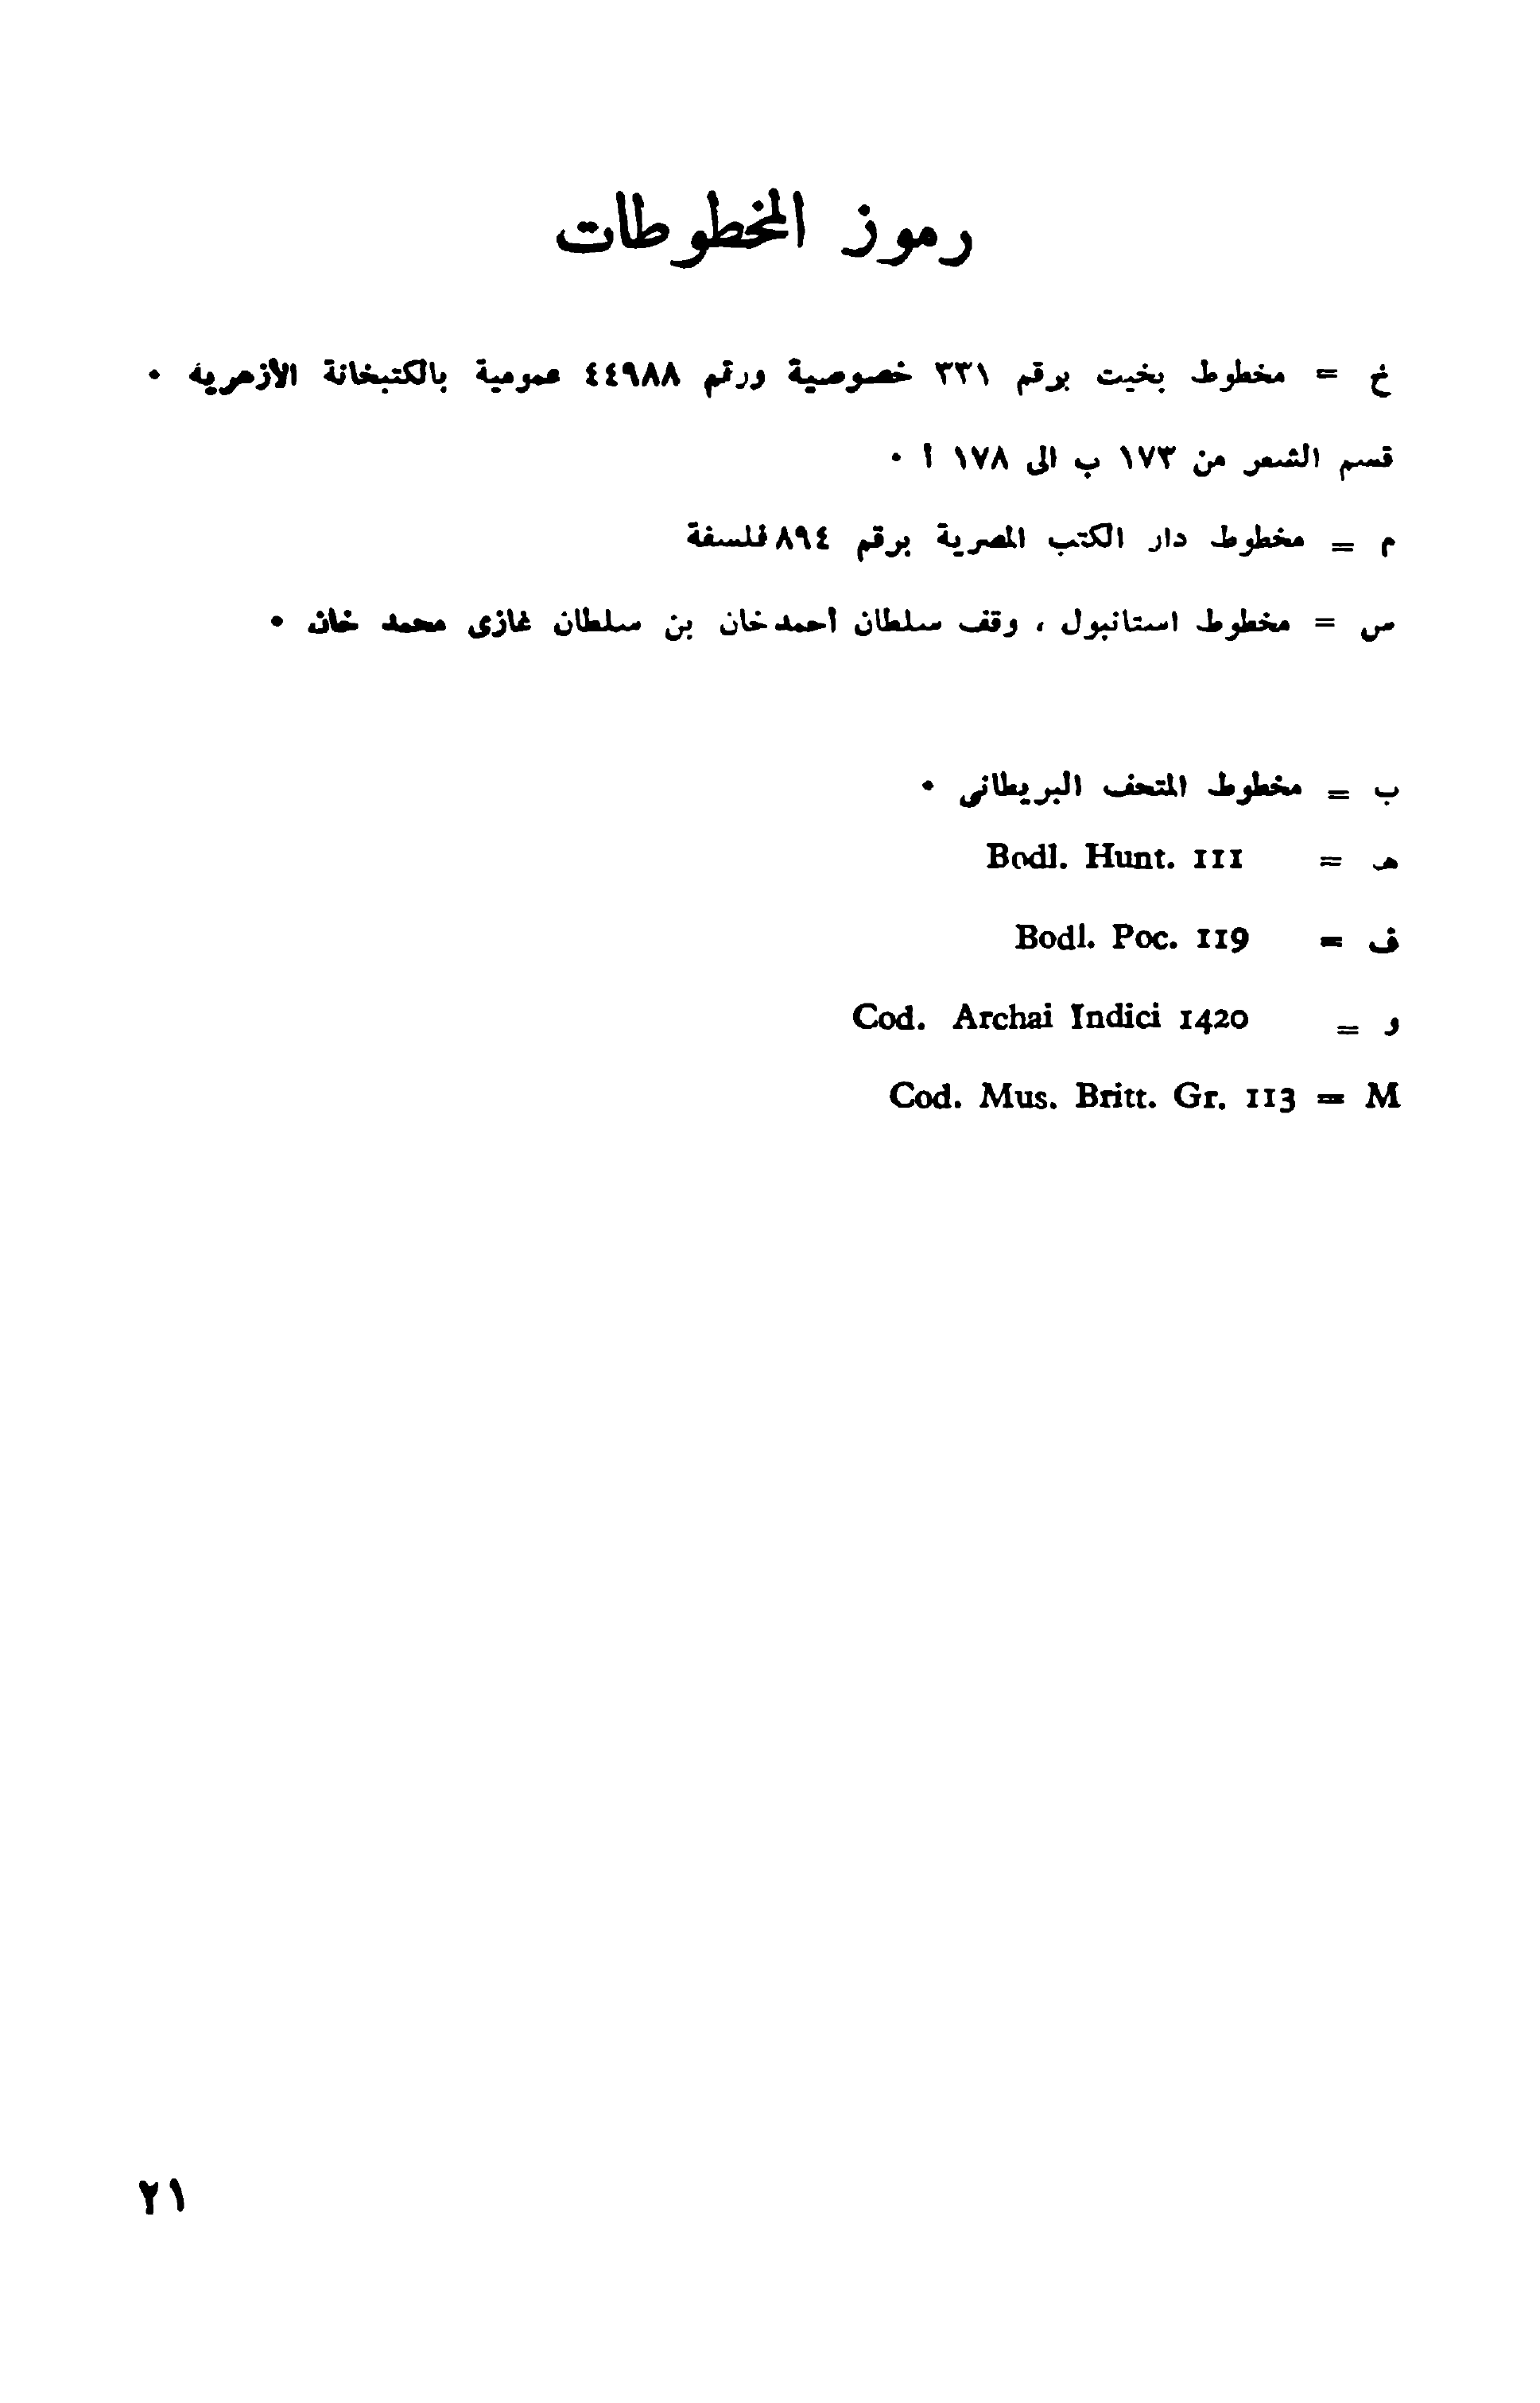 رموز المخطوطات
خ = مخطوط بخيت برقم ٣٣١ خصوصية ورقم ٤٤٩٨٨ عمومية بالكتبخانة الأزهرية ٠
قسم الشعر من ١٧٣ ب الى ١٧٨ أ ٠
م = مخطوط دار الكتب المصرية برقم ٨٩٤ فلسفة
س = مخطوط استانبول ، وقف سلطان أحمد خان بن سلطان غازى محمد خان ٠
ب = مخطوط المتحف البريطانى ٠
هـ = Bodl. Hunt. 111
ف = Bodl. Poc. 119
ر = Cod. Archai Indici 1420
Cod. Mus. Britt. Gr. 113 = M
٢١